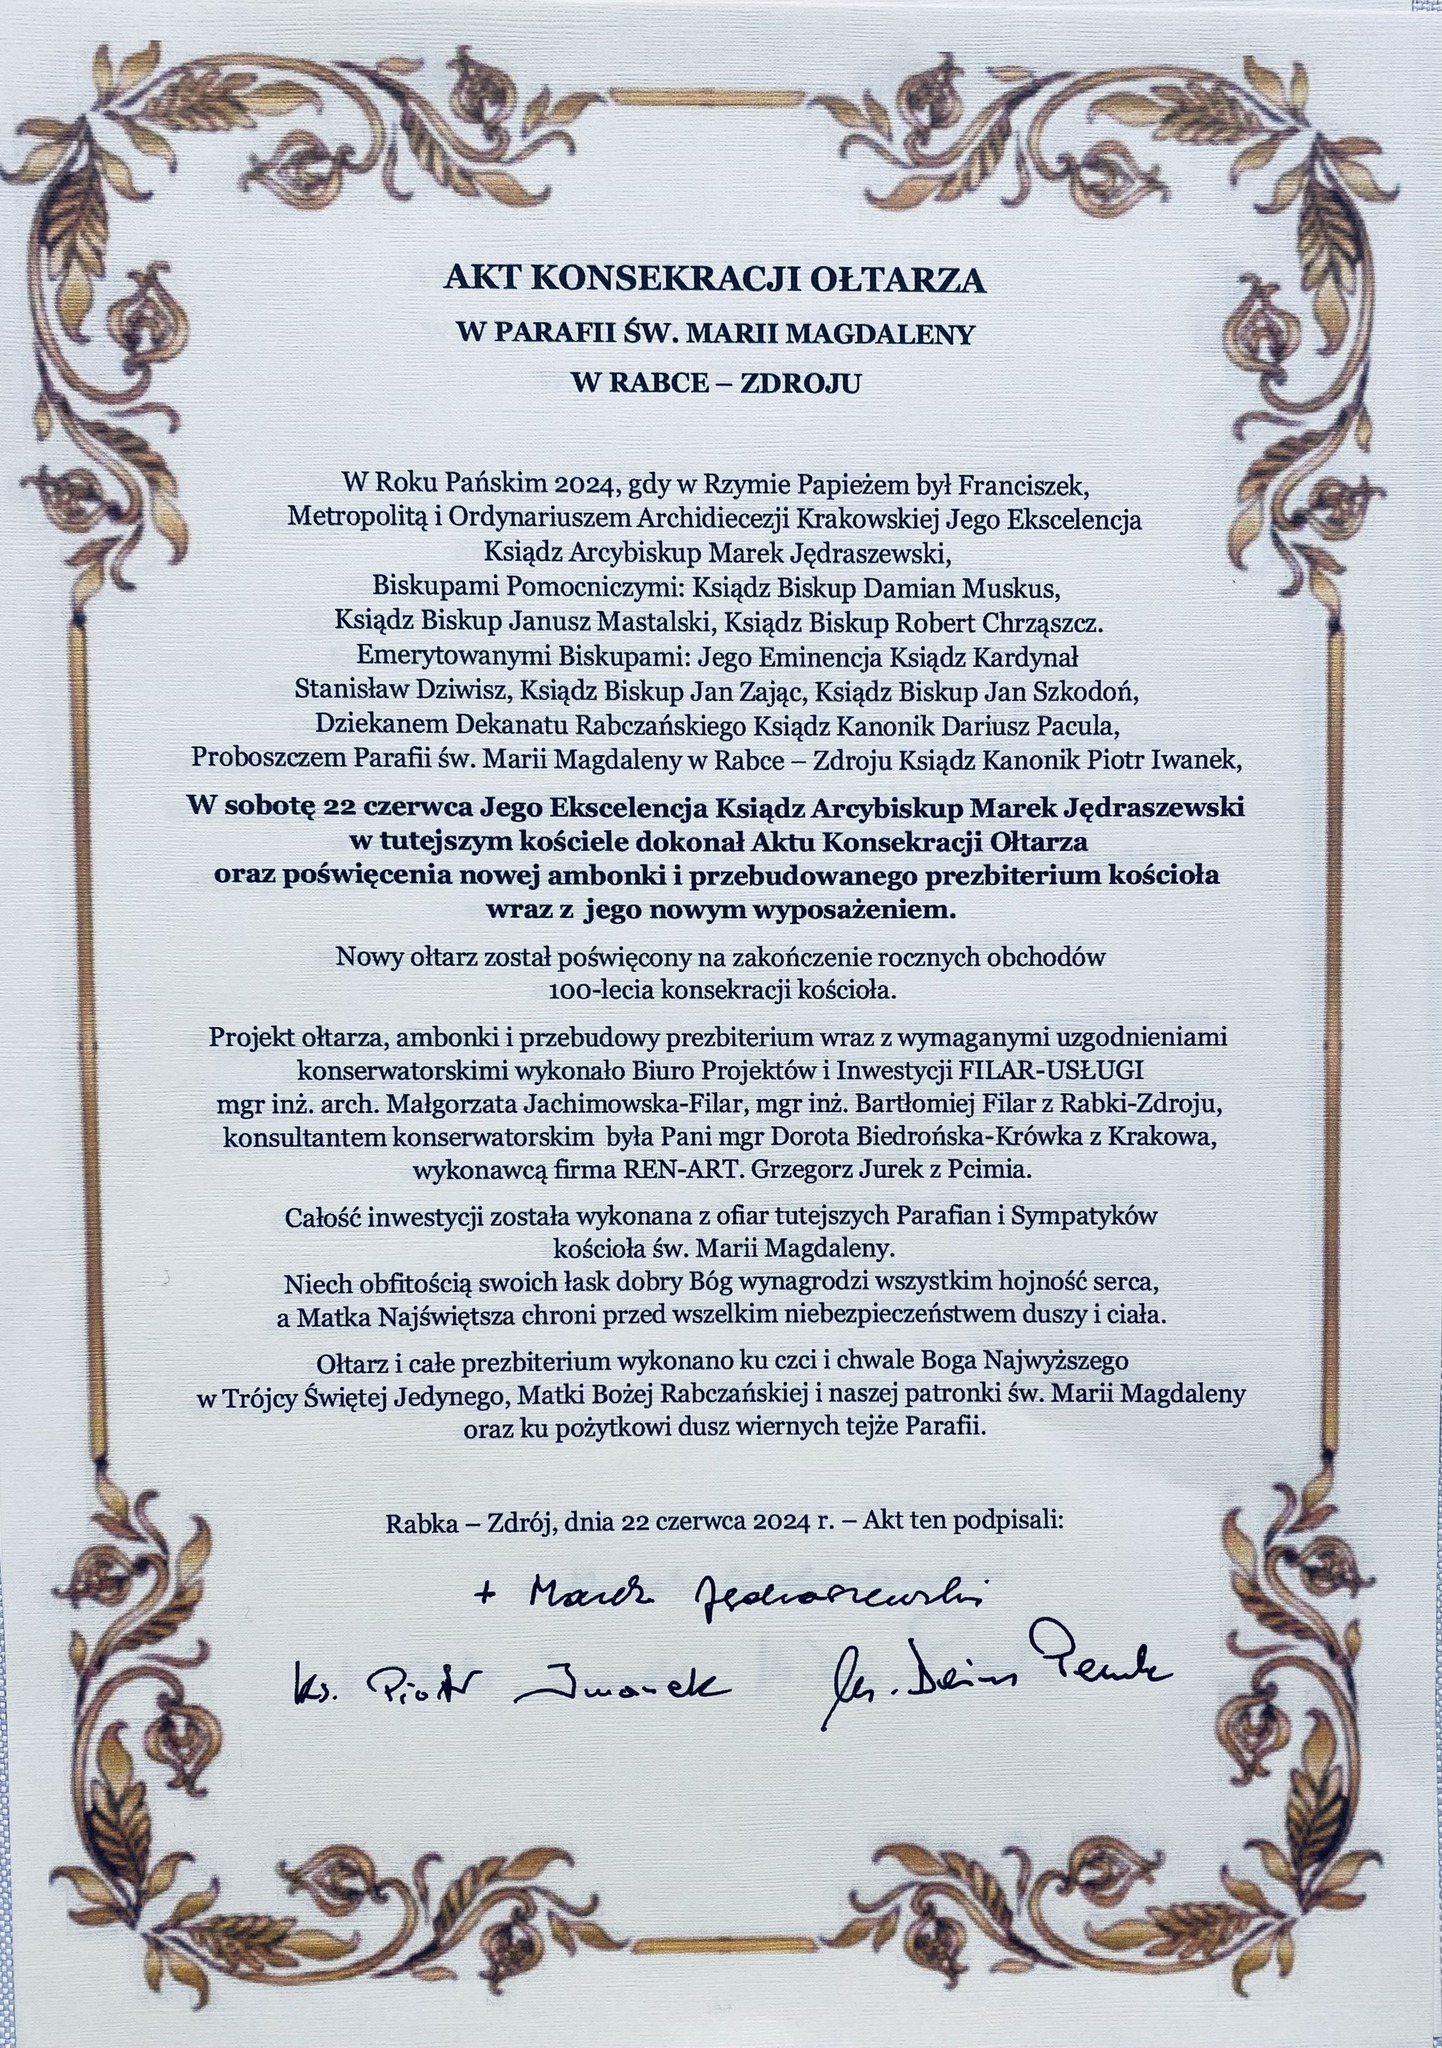 AKT KONSEKRACJI OŁTARZA
W PARAFII ŚW. MARII MAGDALENY
W RABCE – ZDROJU
W Roku Pańskim 2024, gdy w Rzymie Papieżem był Franciszek,
Metropolitą i Ordynariuszem Archidiecezji Krakowskiej Jego Ekscelencja
Ksiądz Arcybiskup Marek Jędraszewski,
Biskupami Pomocniczymi: Ksiądz Biskup Damian Muskus,
Ksiądz Biskup Janusz Mastalski, Ksiądz Biskup Robert Chrząszcz.
Emerytowanymi Biskupami: Jego Eminencja Ksiądz Kardynał
Stanisław Dziwisz, Ksiądz Biskup Jan Zając, Ksiądz Biskup Jan Szkodoń,
Dziekanem Dekanatu Rabczańskiego Ksiądz Kanonik Dariusz Pacula,
Proboszczem Parafii św. Marii Magdaleny w Rabce – Zdroju Ksiądz Kanonik Piotr Iwanek,
W sobotę 22 czerwca Jego Ekscelencja Ksiądz Arcybiskup Marek Jędraszewski
w tutejszym kościele dokonał Aktu Konsekracji Ołtarza
oraz poświęcenia nowej ambonki i przebudowanego prezbiterium kościoła
wraz z jego nowym wyposażeniem.
Nowy ołtarz został poświęcony na zakończenie rocznych obchodów
100-lecia konsekracji kościoła.
Projekt ołtarza, ambonki i przebudowy prezbiterium wraz z wymaganymi uzgodnieniami
konserwatorskimi wykonało Biuro Projektów i Inwestycji FILAR-USŁUGI
mgr inż. arch. Małgorzata Jachimowska-Filar, mgr inż. Bartłomiej Filar z Rabki-Zdroju,
konsultantem konserwatorskim była Pani mgr Dorota Biedrońska-Krówka z Krakowa,
wykonawcą firma REN-ART. Grzegorz Jurek z Pcimia.
Całość inwestycji została wykonana z ofiar tutejszych Parafian i Sympatyków
kościoła św. Marii Magdaleny.
Niech obfitością swoich łask dobry Bóg wynagrodzi wszystkim hojność serca,
a Matka Najświętsza chroni przed wszelkim niebezpieczeństwem duszy i ciała.
Ołtarz i całe prezbiterium wykonano ku czci i chwale Boga Najwyższego
w Trójcy Świętej Jedynego, Matki Bożej Rabczańskiej i naszej patronki św. Marii Magdaleny
oraz ku pożytkowi dusz wiernych tejże Parafii.
Rabka – Zdrój, dnia 22 czerwca 2024 r. – Akt ten podpisali:
+ Marek Jędraszewski
ks. Piotr Iwanek ks. Dariusz Pacula